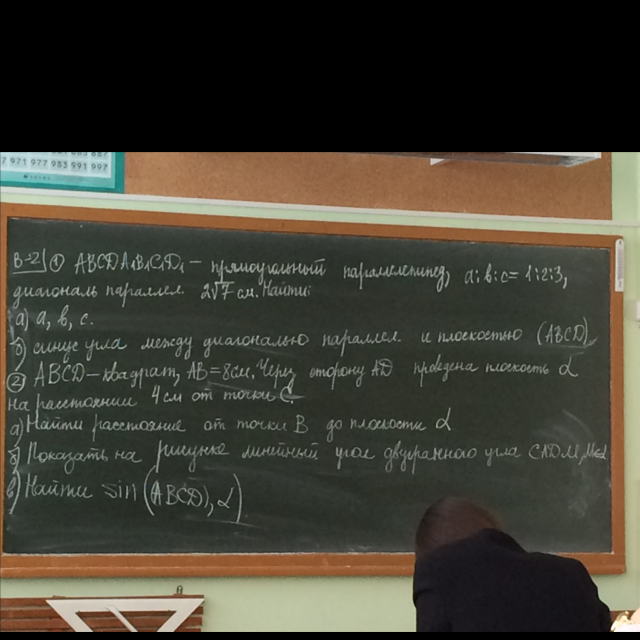 7 971 977 983 991 997
В-2 ① ABCDA₁B₁C₁D₁ – прямоугольный параллелепипед, a:b:c=1:2:3,
диагональ параллел. 2√7 см. Найти:
а) a, b, c.
б) синус угла между диагональю параллел. и плоскостью (ABCD).
② ABCD – квадрат, AB = 8см. Через сторону AD проведена плоскость α
на расстоянии 4 см от точки C.
а) Найти расстояние от точки B до плоскости α
б) Показать на рисунке линейный угол двугранного угла CADM, M∈α
в) Найти sin((ABCD), α)